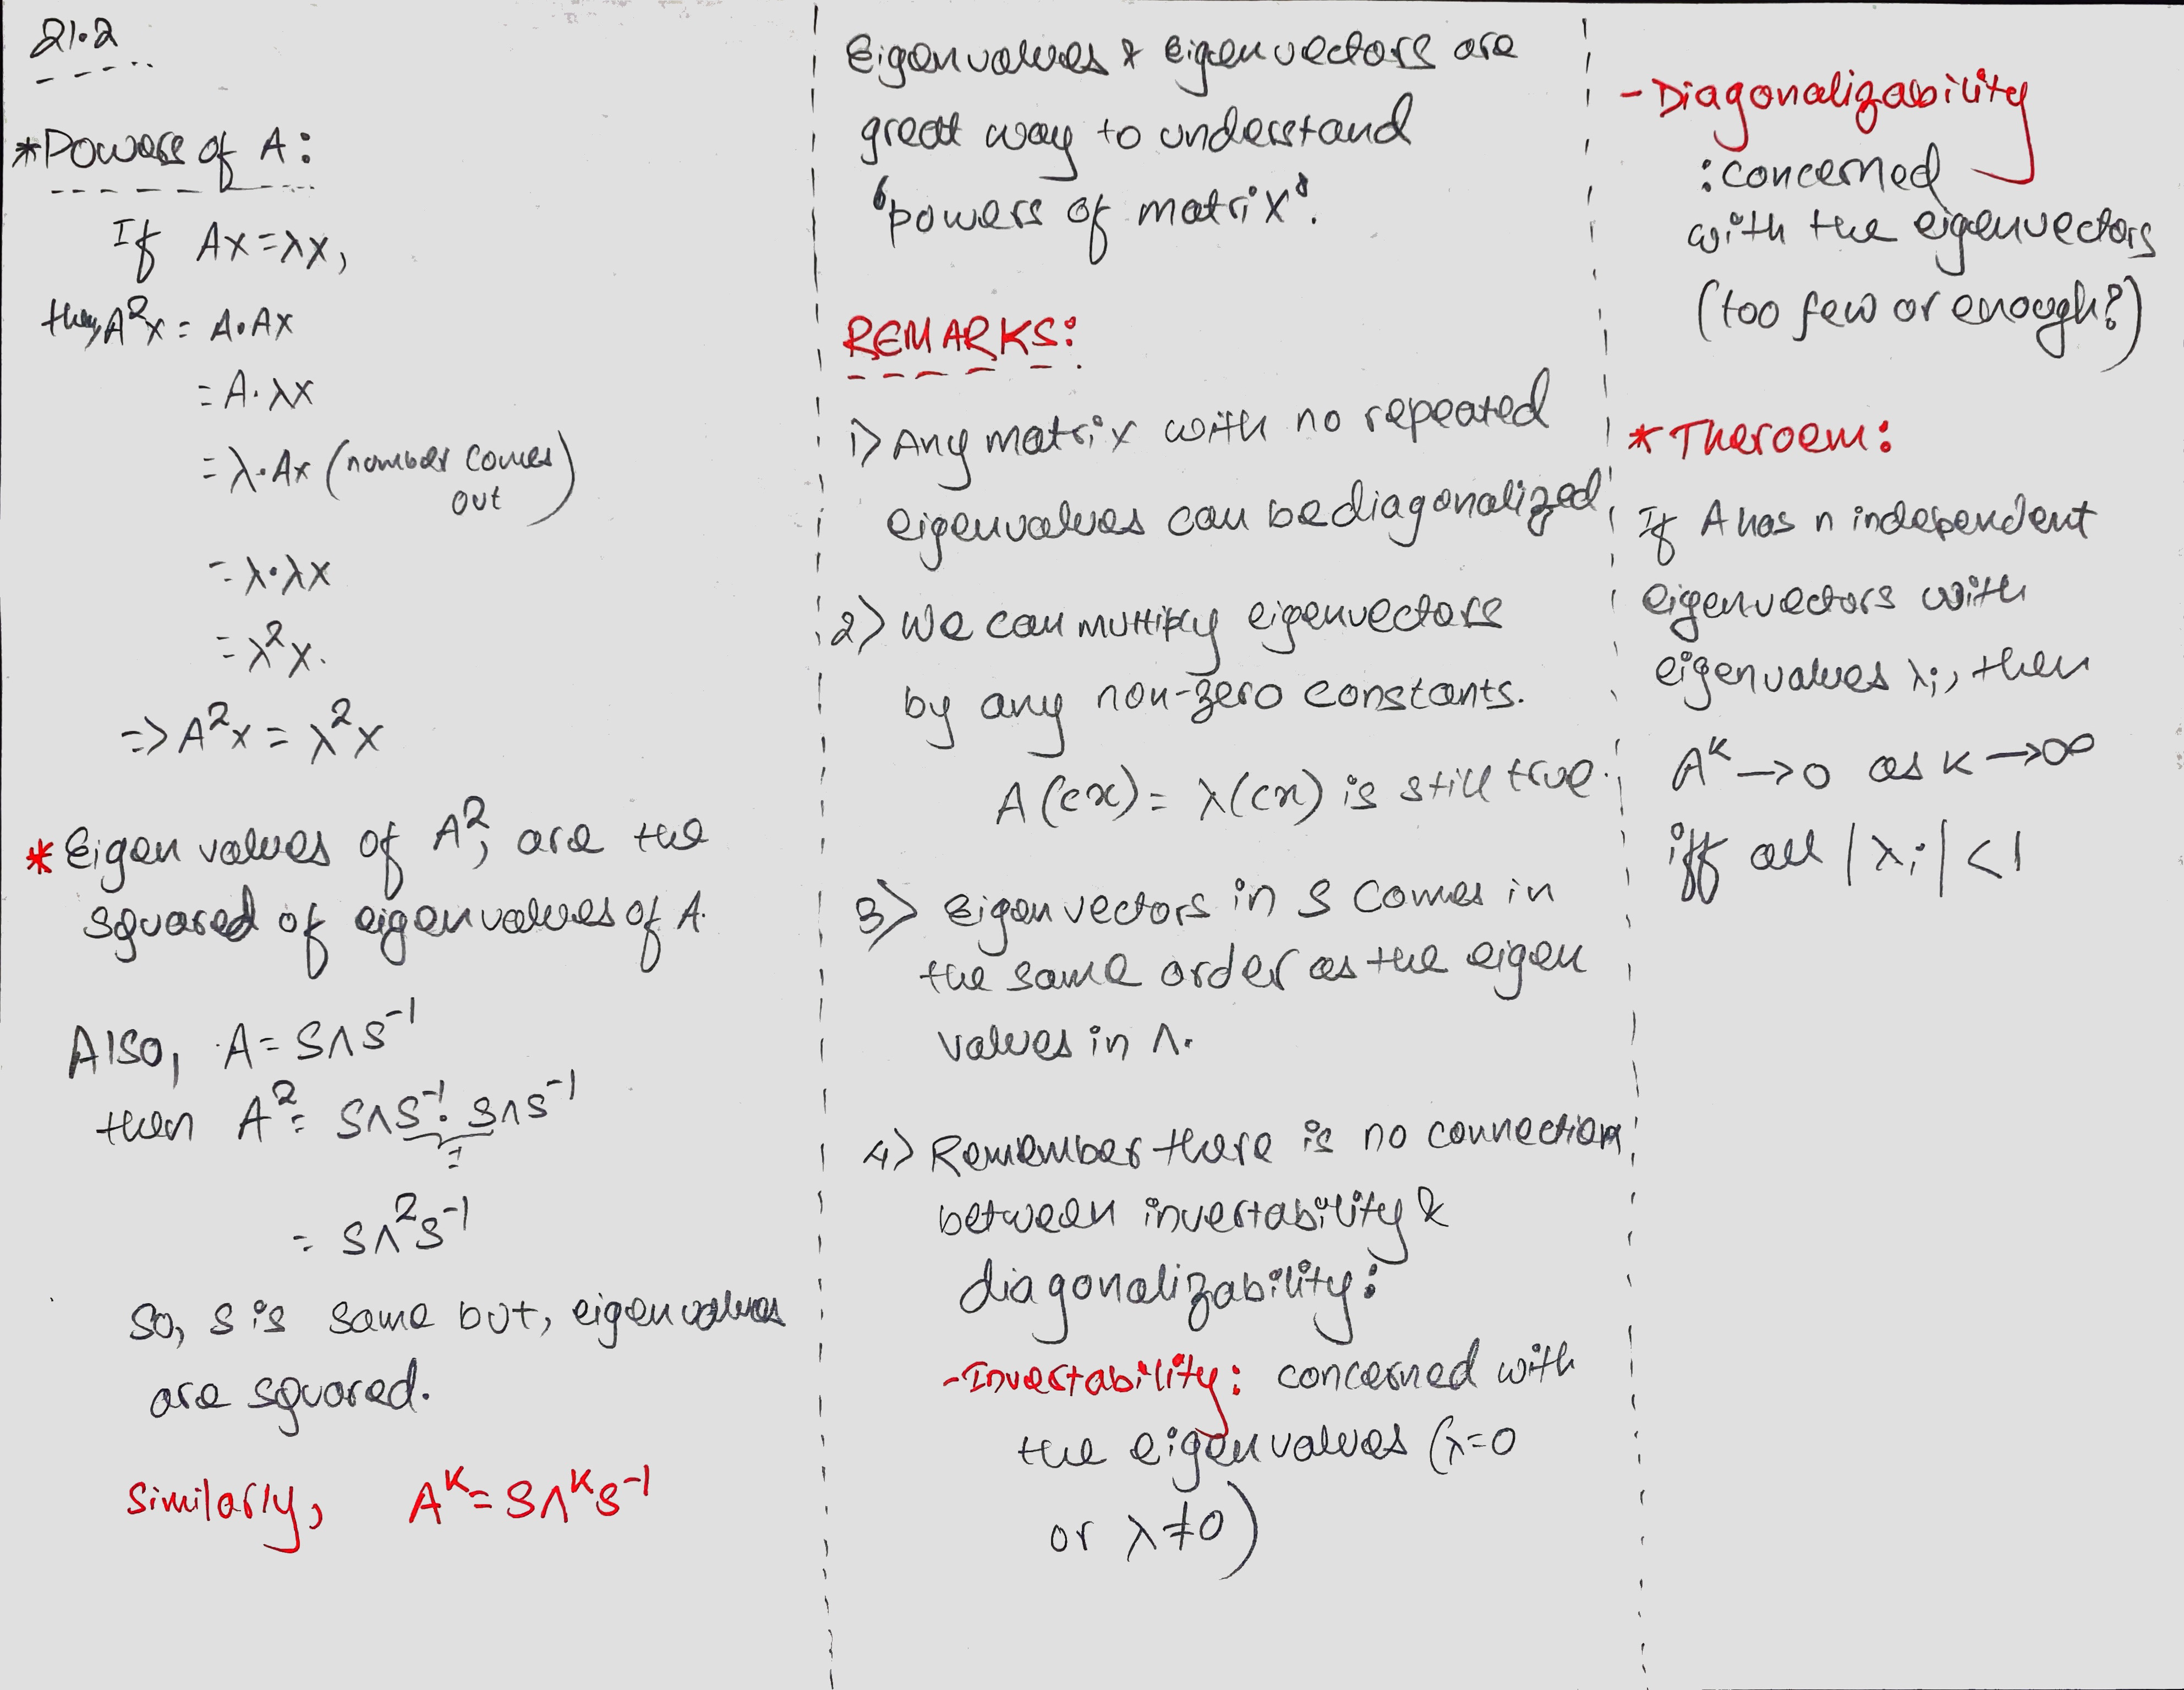 21.2
*Powers of A:
If Ax=λx,
then, A²x = A·Ax
= A·λx
= λ·Ax (number comes
out)
= λ·λx
= λ²x.
=> A²x = λ²x
* Eigen values of A², are the
squared of eigenvalues of A.
Also, A = SΛS⁻¹
then A² = SΛS⁻¹·SΛS⁻¹
I
= SΛ²S⁻¹
So, S is same but, eigenvalues
are squared.
Similarly, Aᴷ = SΛᴷS⁻¹
Eigenvalues & eigenvectors are
great way to understand
'powers of matrix'.
REMARKS:
1) Any matrix with no repeated
eigenvalues can be diagonalized
2) We can multiply eigenvectors
by any non-zero constants.
A(cx) = λ(cx) is still true.
3) Eigenvectors in S comes in
the same order as the eigen
values in Λ.
4) Remember there is no connection
between invertability &
diagonalizability:
-Invertability: concerned with
the eigenvalues (λ=0
or λ≠0)
-Diagonalizability
: concerned
with the eigenvectors
(too few or enough?)
* Theroem:
If A has n independent
eigenvectors with
eigenvalues λᵢ, then
Aᴷ → 0 as K → ∞
iff all |λᵢ| < 1